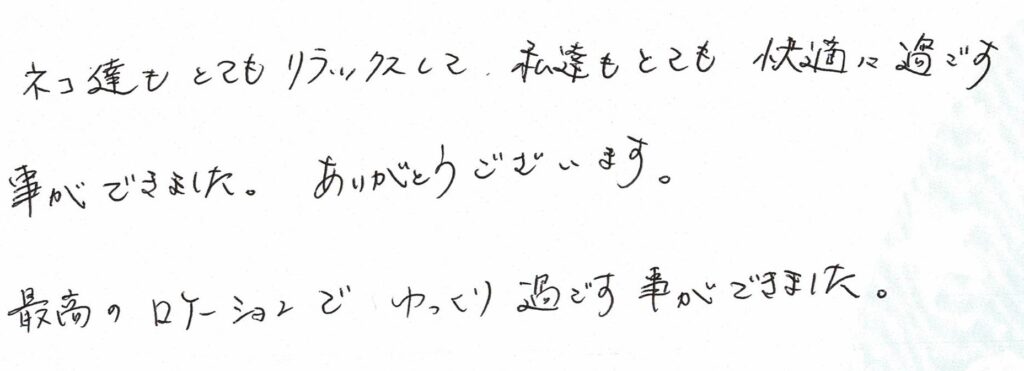 ネコ達もとてもリラックスして、私達もとても快適に過ごす
事ができました。ありがとうございます。
最高のロケーションでゆっくり過ごす事ができました。